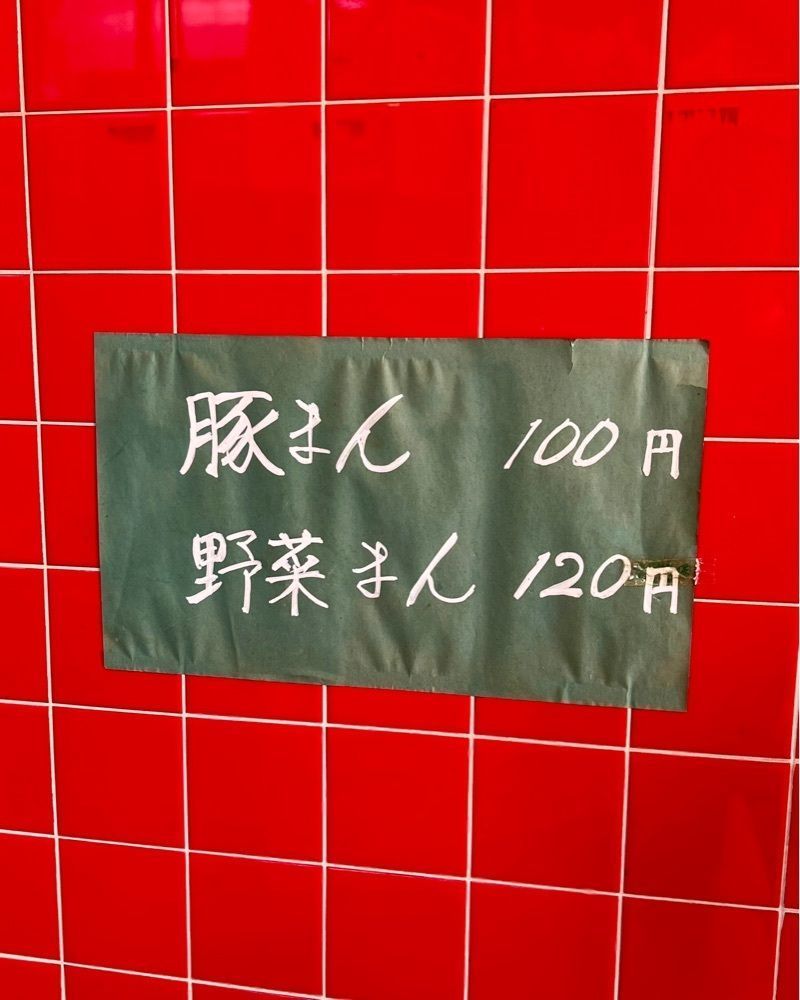 豚まん 100円
野菜まん 120円